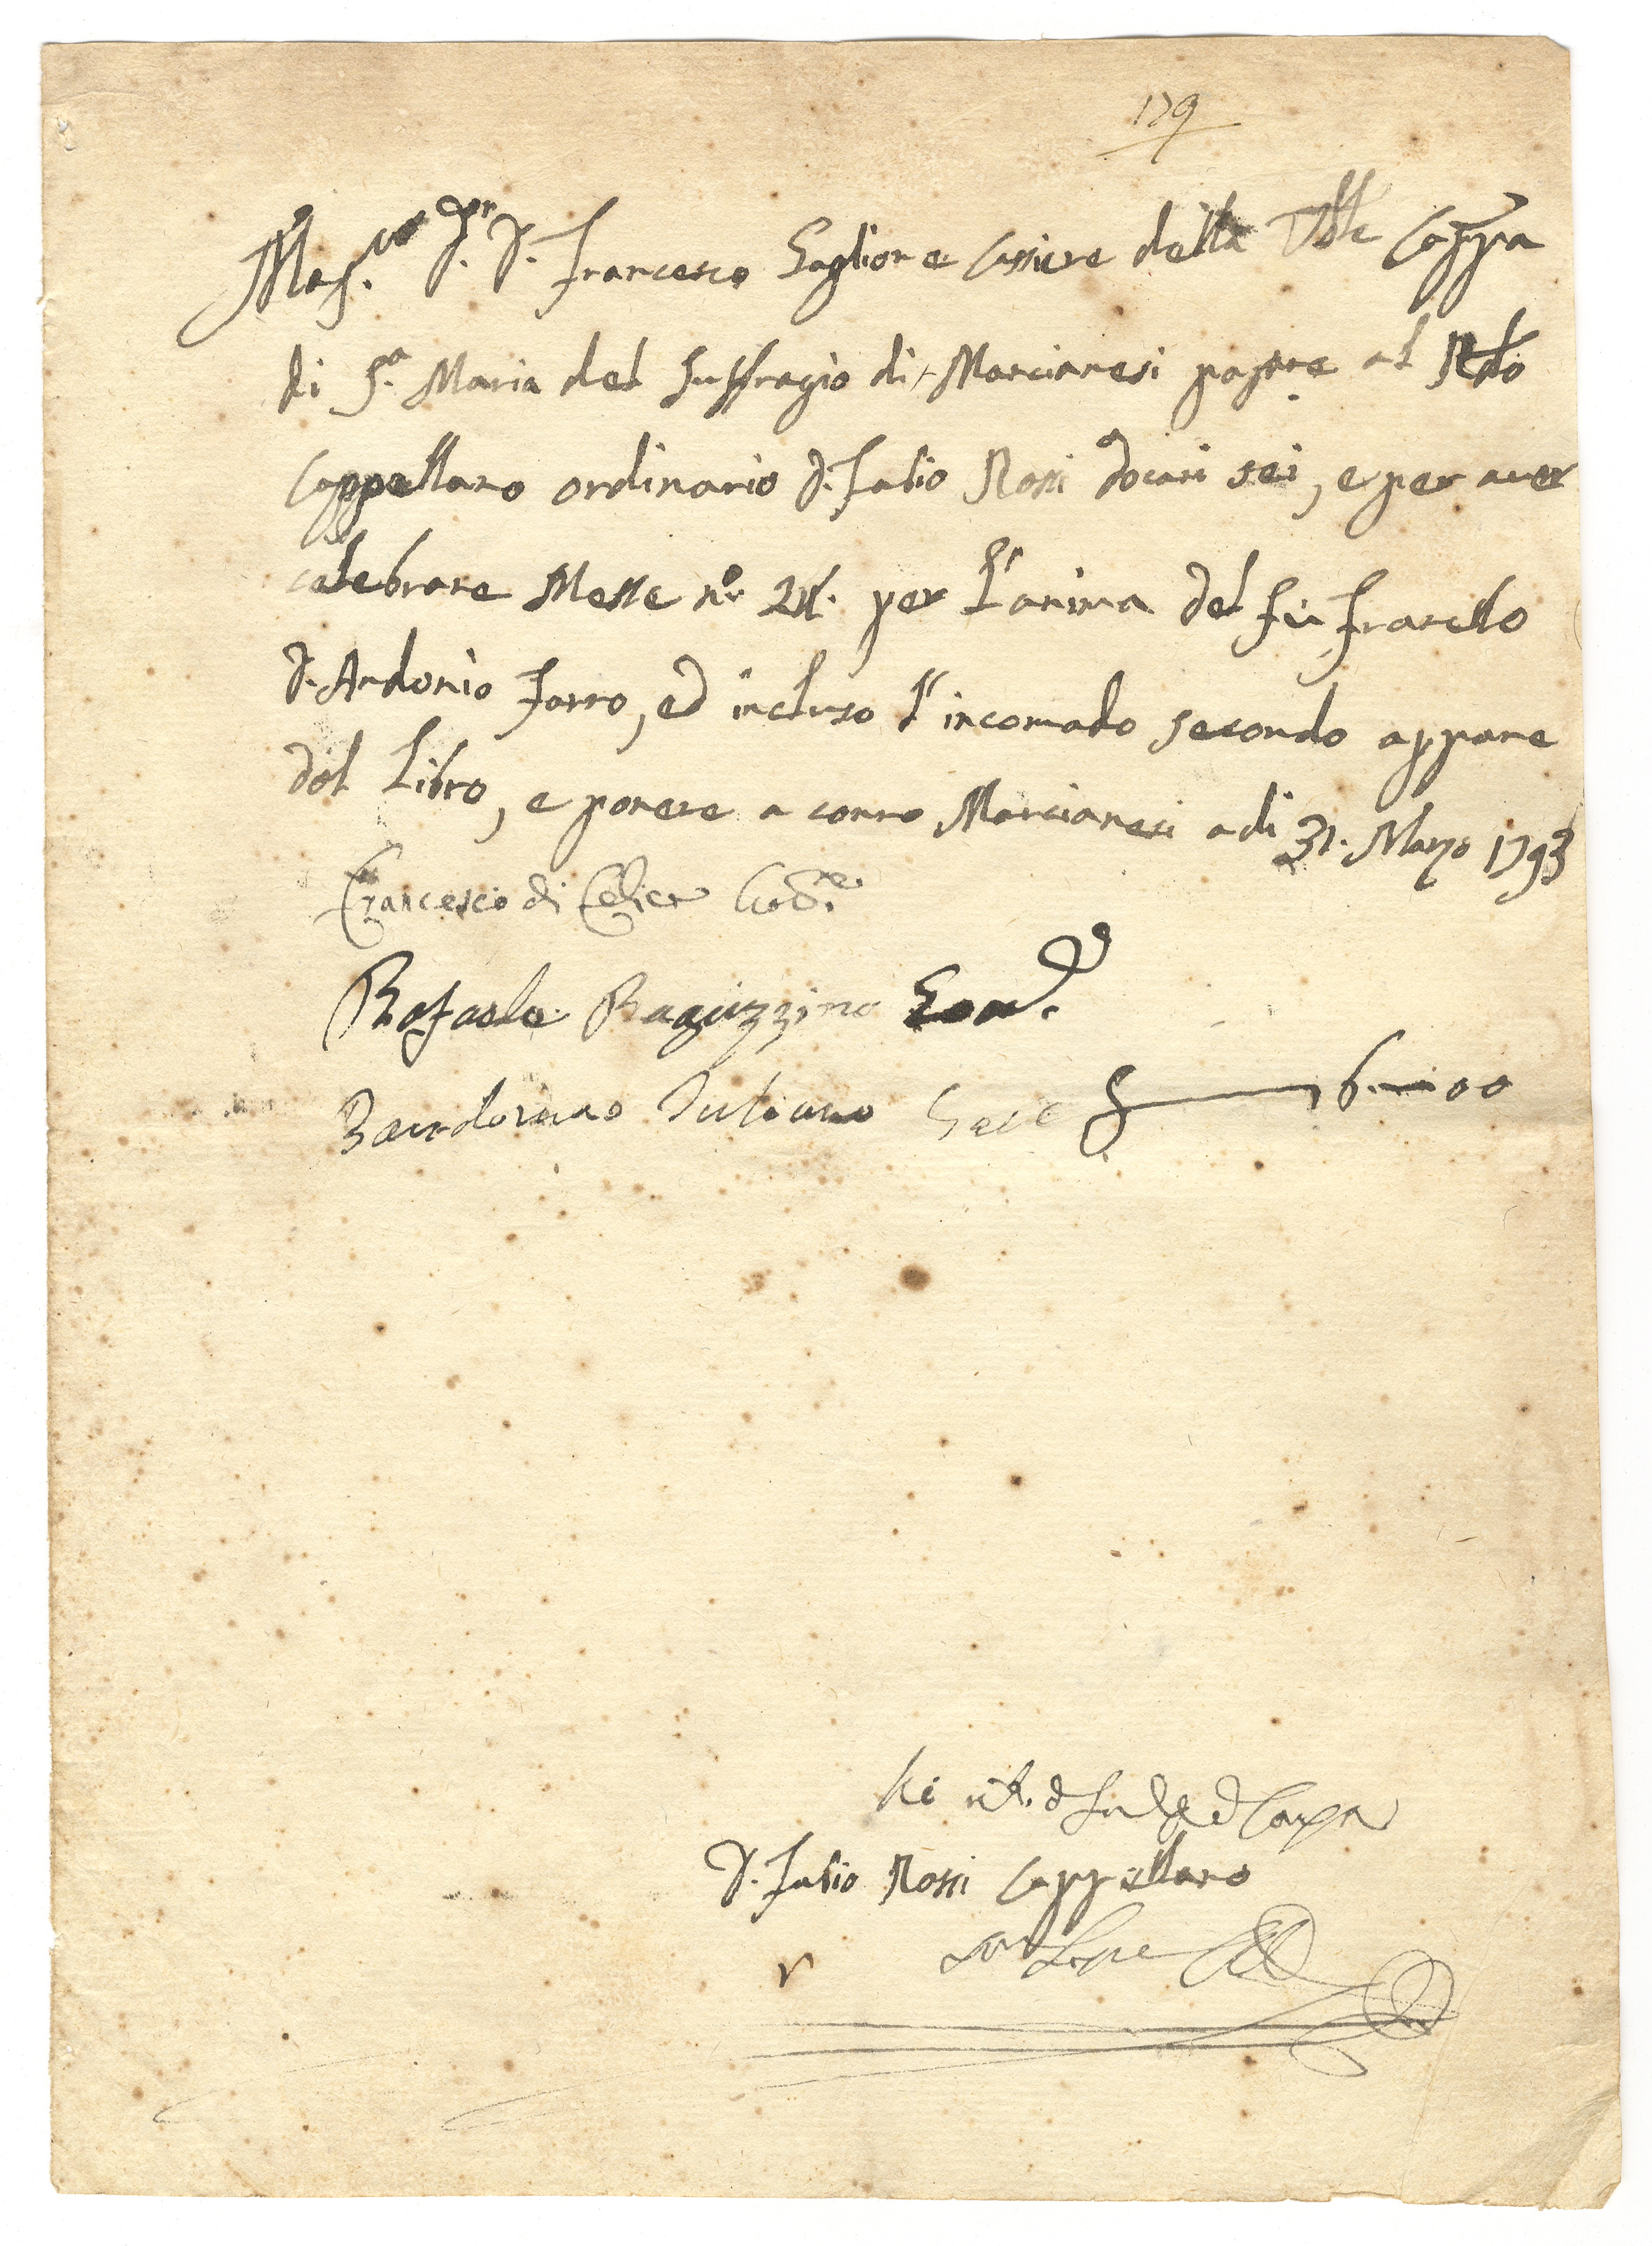 179
Mag.co S.r D. Francesco Saglione Cassiere della Vble Cappa
di S.a Maria del Suffragio di Marcianesi pagare al Rdo
Cappellano ordinario D. Fabio Rossi docati sei, e per aver
celebrare Messe no. 24. per l'anima del fù Fratello
D. Andonio Farro, ed incluso l'incomodo secondo appare
dal Libro, e ponere a conto Marcianesi adi 31. Marzo 1793
Francesco di Felice Gov.re
Rafaele Raguzzino Gov.e
6.—00
D. Fabio Rossi Cappellano